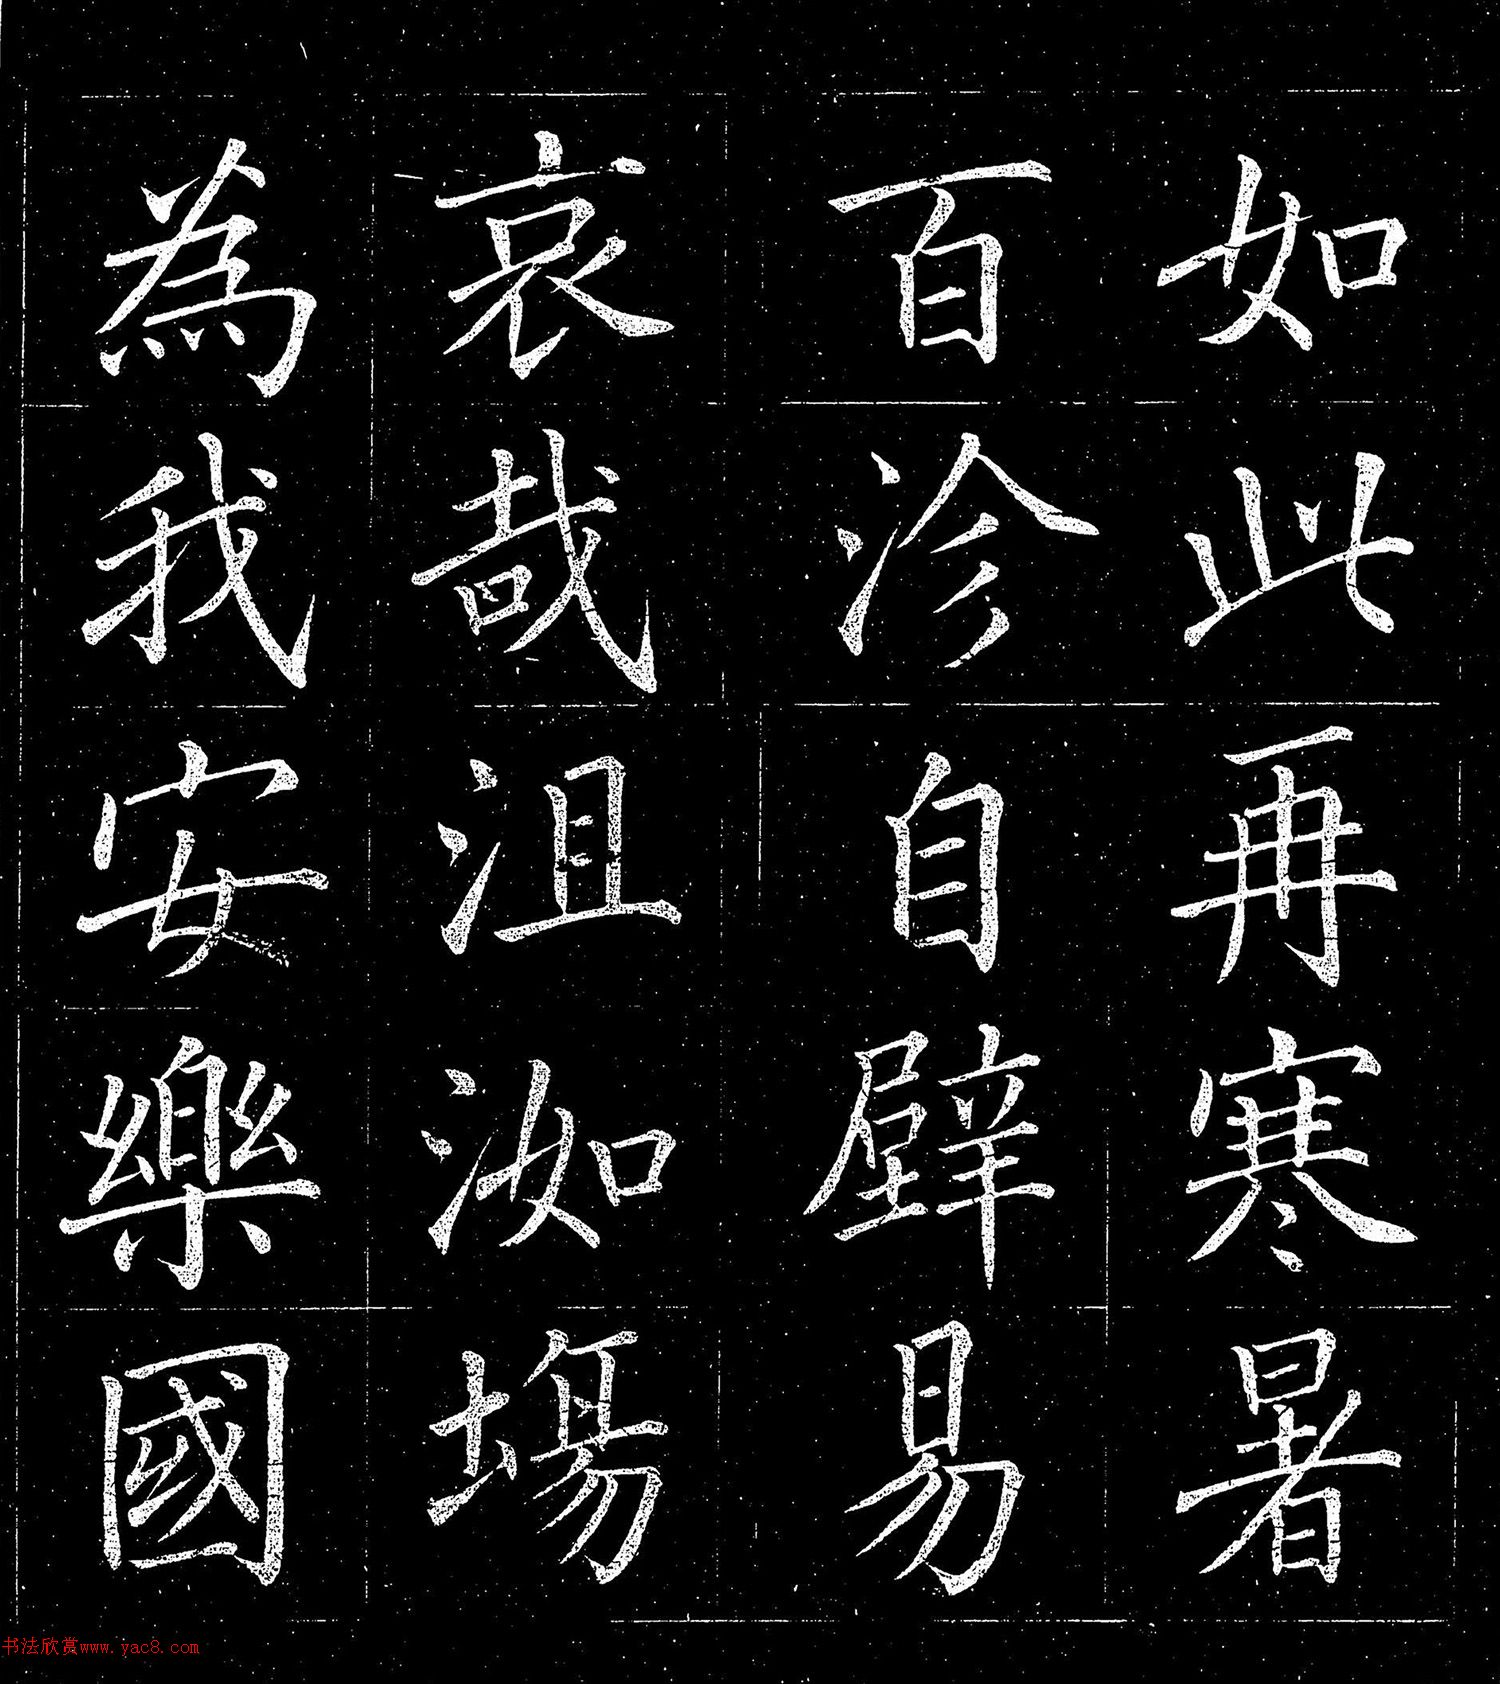 如此再寒暑
百沴自辟易
哀哉沮洳塲
為我安樂國
书法欣赏www.yac8.com